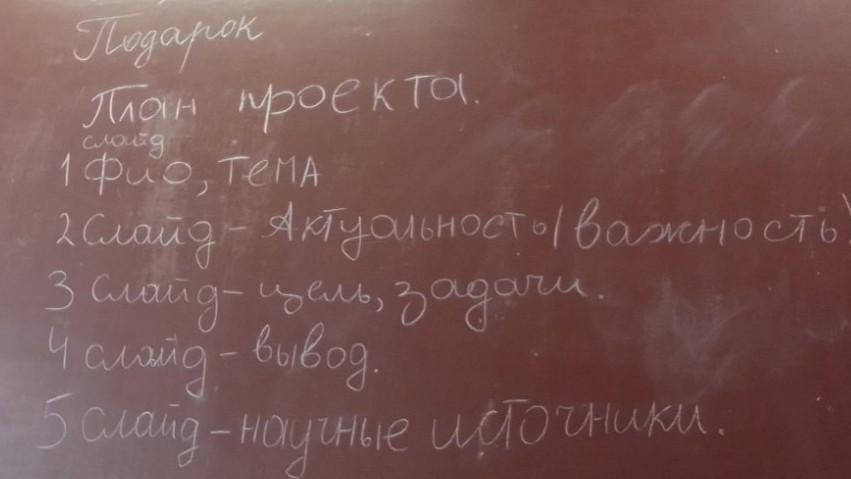 Подарок
План проекта.
слайд
1 Фио, тема
2 слайд - Актуальность/важность
3 слайд - цель, задачи.
4 слайд - вывод.
5 слайд - научные источники.